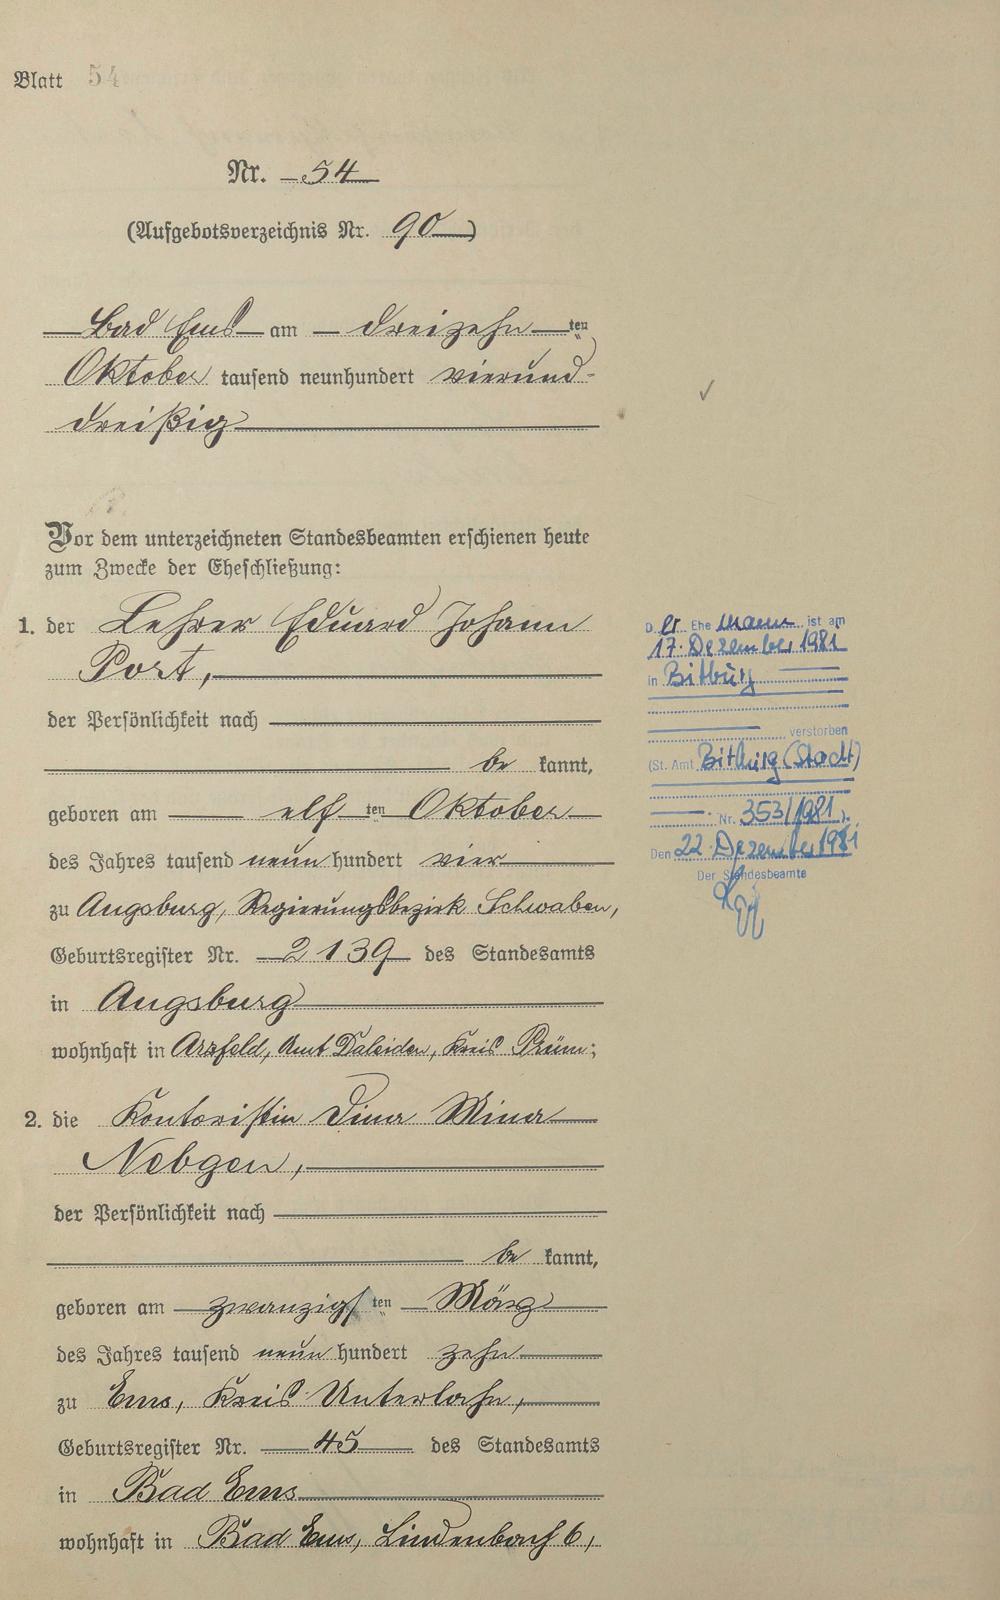 Blatt 54
Nr. 54
(Aufgebotsverzeichnis Nr. 90)
Bad Ems am dreizehn ten
Oktober tausend neunhundert vierund-
dreißig
Vor dem unterzeichneten Standesbeamten erschienen heute
zum Zwecke der Eheschließung:
1. der Lehrer Eduard Johann
Port,
der Persönlichkeit nach
be kannt,
geboren am elf ten Oktober
des Jahres tausend neun hundert vier
zu Augsburg, Regierungsbezirk Schwaben,
Geburtsregister Nr. 2139 des Standesamts
in Augsburg
wohnhaft in Arzfeld, Amt Daleiden, Kreis Prüm;
2. die Kontoristin Dina Mina
Nebgen,
der Persönlichkeit nach
be kannt,
geboren am zwanzigs ten März
des Jahres tausend neun hundert zehn
zu Ems, Kreis Unterlahn,
Geburtsregister Nr. 45 des Standesamts
in Bad Ems
wohnhaft in Bad Ems, Lindenbach 6,
D er Ehe mann ist am
17. Dezember 1981
in Bitburg
verstorben
(St. Amt Bitburg (Stadt)
Nr. 353/1981).
Den 22. Dezember 1981
Der Standesbeamte